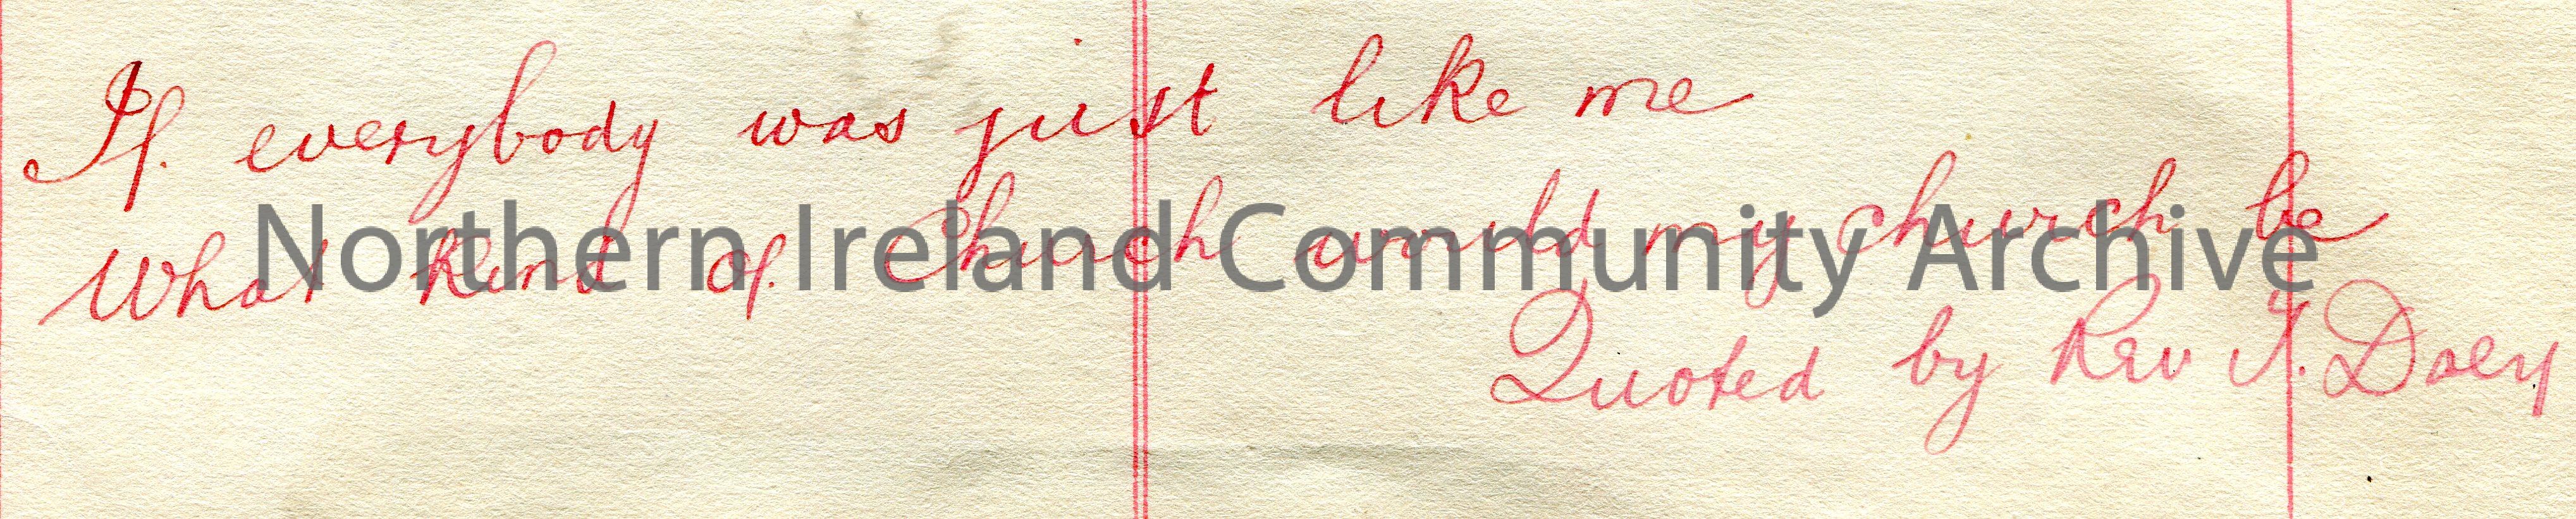 If everybody was just like me
What kind of Church would my church be
Quoted by Rev T. Doey
Northern Ireland Community Archive